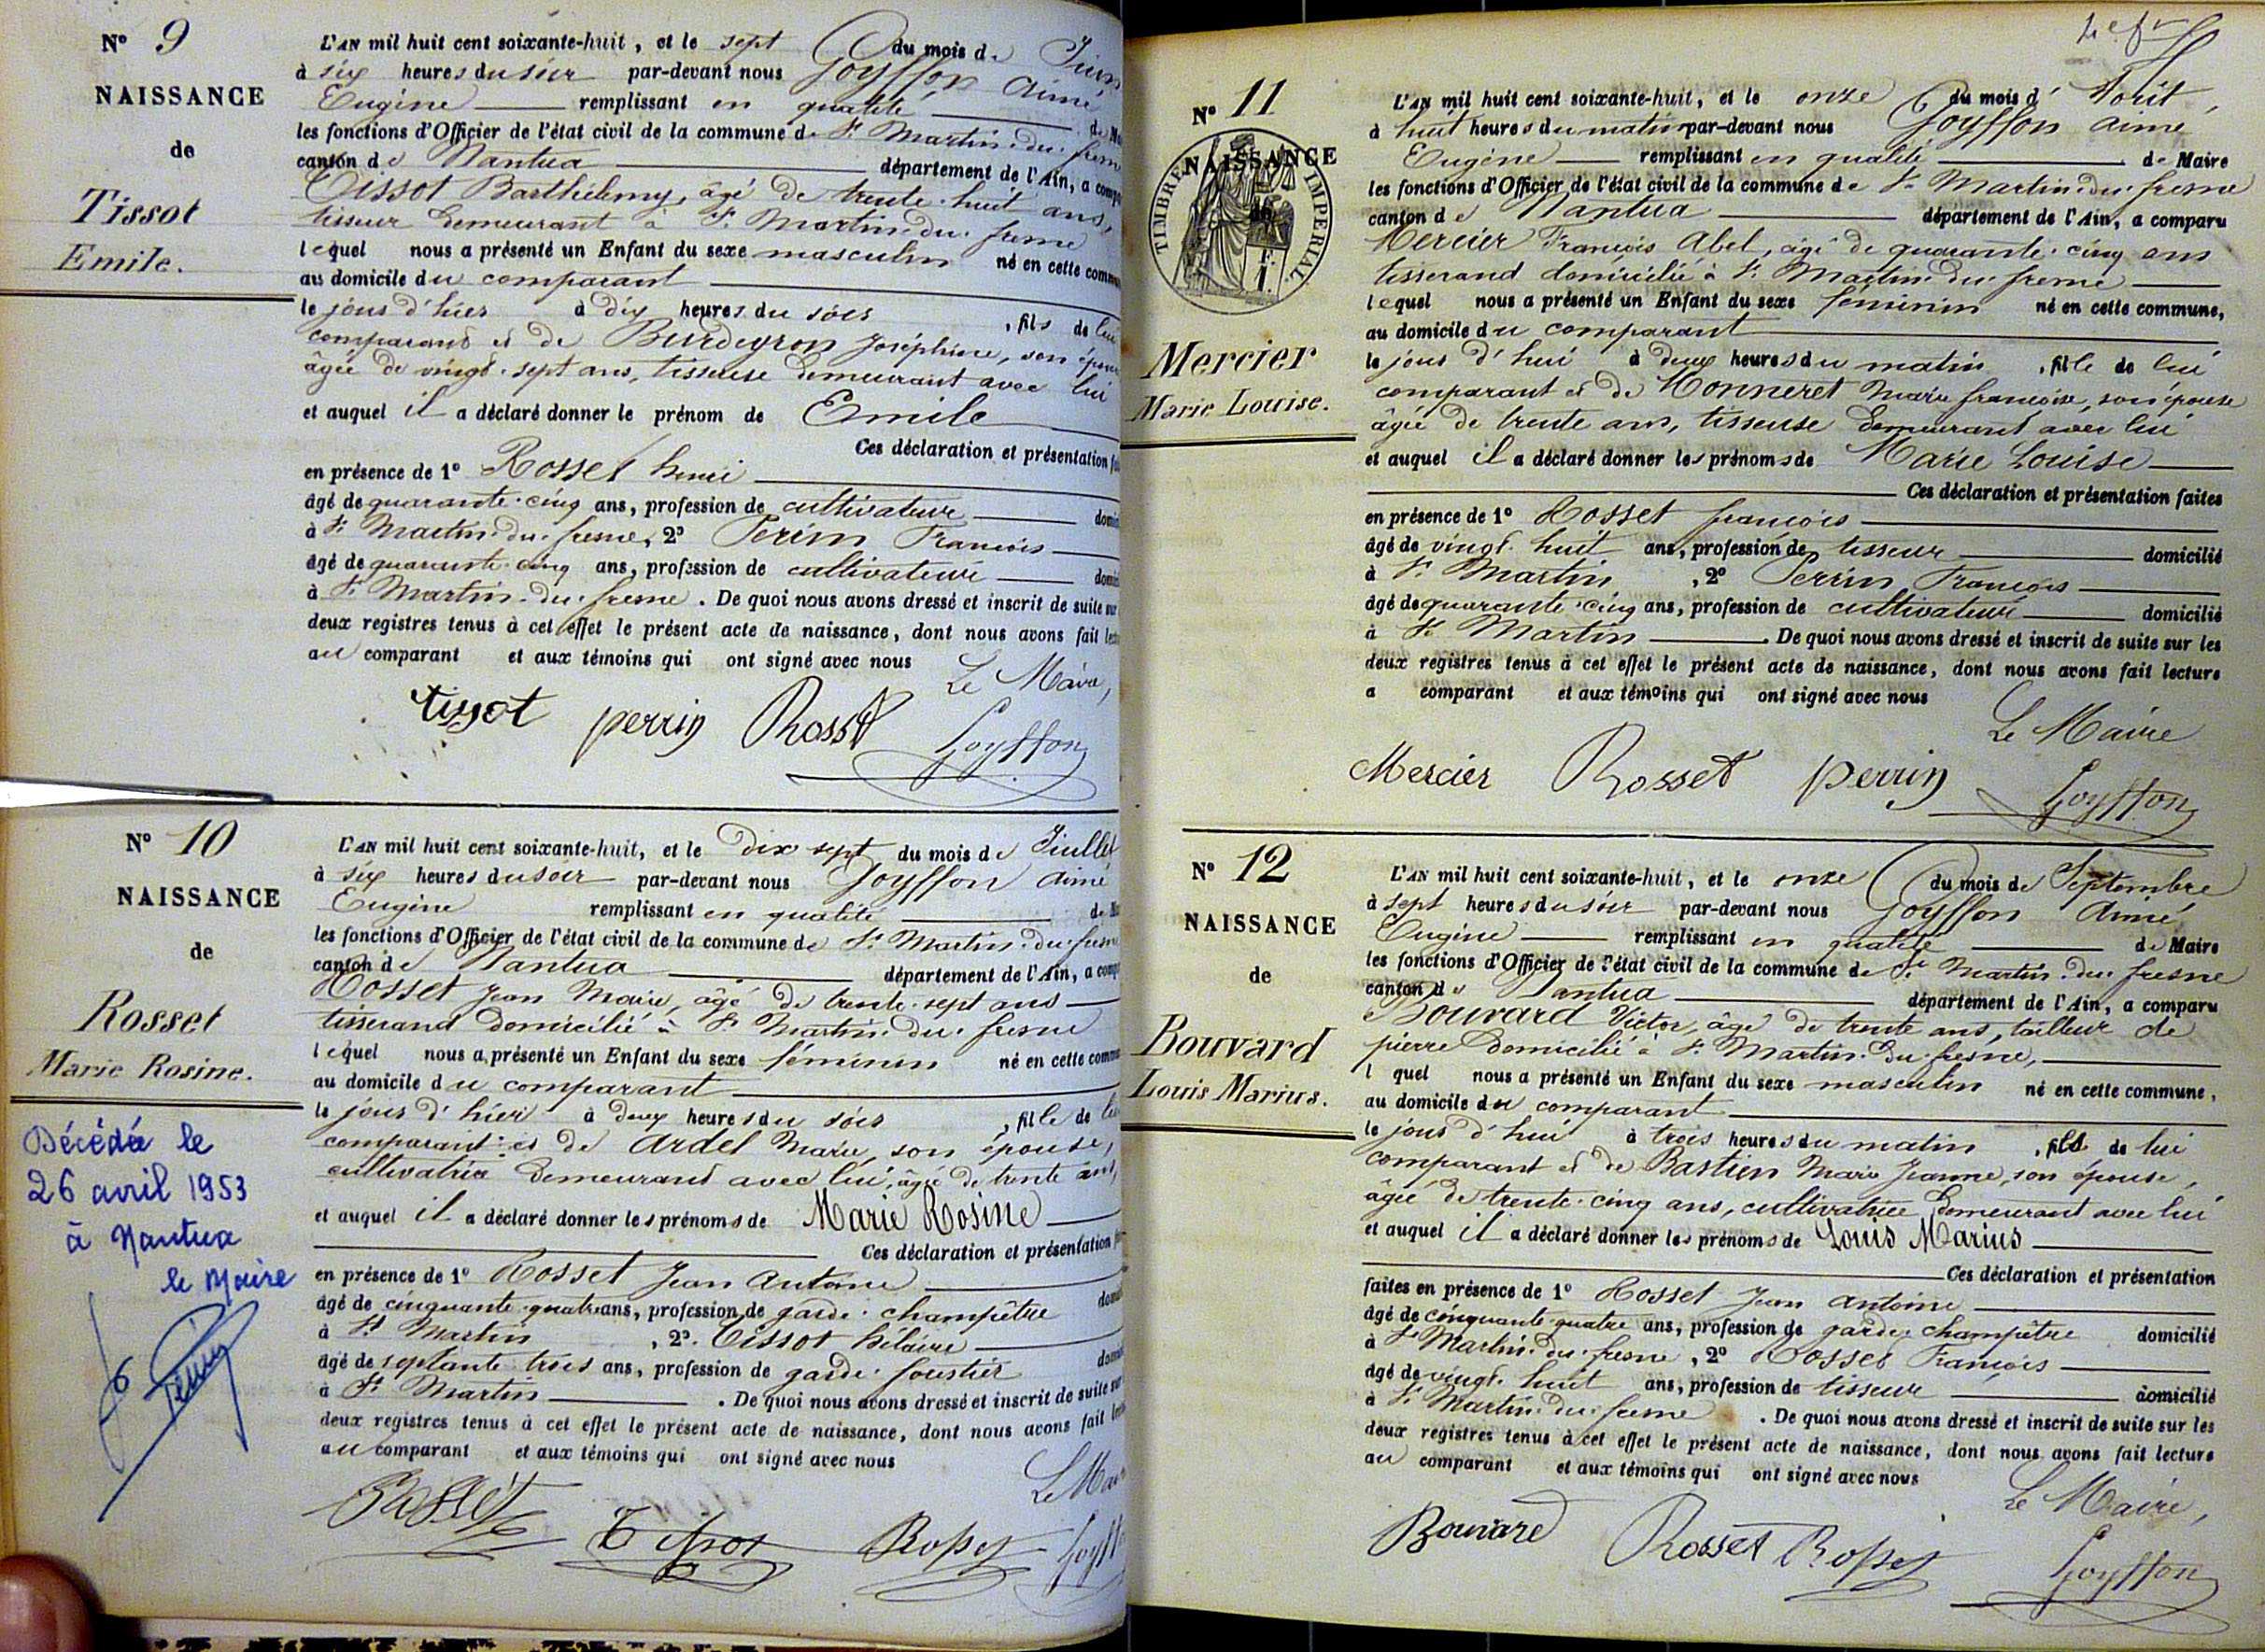 N° 9
NAISSANCE
de
Tissot
Emile.
L'AN mil huit cent soixante-huit, et le sept du mois de Juin
à six heures du soir par-devant nous Goyffon Aimé
Eugène remplissant en qualité de
les fonctions d'Officier de l'état civil de la commune de St Martin-du-fresne
canton de Nantua département de l'Ain, a comp
Tissot Barthélemy, âgé de trente-huit ans,
tisseur demeurant à St Martin-du-fresne
lequel nous a présenté un Enfant du sexe masculin né en cette commu
au domicile du comparant
le jour d'hier à dix heures du soir, fils de lui
comparant et de Burdeyron Joséphine, son épouse
âgée de vingt-sept ans, tisseuse demeurant avec lui
et auquel il a déclaré donner le prénom de Emile
Ces déclaration et présentation
en présence de 1° Rosset henri
âgé de quarante-cinq ans, profession de cultivateur domi
à St Martin-du-fresne, 2° Perin François
âgé de quarante-cinq ans, profession de cultivateur domi
à St Martin-du-fresne. De quoi nous avons dressé et inscrit de suite sur
deux registres tenus à cet effet le présent acte de naissance, dont nous avons fait lect
au comparant et aux témoins qui ont signé avec nous
Le Maire,
tissot perrin Rosset Goyffon
N° 10
NAISSANCE
de
Rosset
Marie Rosine.
Décédée le
26 avril 1953
à Nantua
le Maire
L'AN mil huit cent soixante-huit, et le dix sept du mois de Juillet
à six heures du soir par-devant nous Goyffon Aimé
Eugène remplissant en qualité de
les fonctions d'Officier de l'état civil de la commune de St Martin-du-fresne
canton de Nantua département de l'Ain, a comp
Rosset Jean Marie, âgé de trente-sept ans
tisserand domicilié à St Martin-du-fresne
lequel nous a présenté un Enfant du sexe féminin né en cette commu
au domicile du comparant
le jour d'hier à deux heures du soir, fille de lui
comparant et de Ardel Marie, son épouse,
cultivatrice demeurant avec lui, âgée de trente ans,
et auquel il a déclaré donner les prénoms de Marie Rosine
Ces déclaration et présentation
en présence de 1° Rosset Jean Antoine
âgé de cinquante-quatre ans, profession de garde-champêtre domi
à St Martin, 2° Tissot hélaire
âgé de septante-trois ans, profession de garde-foustier domi
à St Martin. De quoi nous avons dressé et inscrit de suite sur
deux registres tenus à cet effet le présent acte de naissance, dont nous avons fait lect
au comparant et aux témoins qui ont signé avec nous
Le Mai
Rosset Tissot Rosset Goyff
N° 11
NAISSANCE
de
TIMBRE IMPERIAL
Mercier
Marie Louise.
L'AN mil huit cent soixante-huit, et le onze du mois d'Août,
à huit heures du matin par-devant nous Goyffon Aimé
Eugène remplissant en qualité de Maire
les fonctions d'Officier de l'état civil de la commune de St Martin-du-fresne
canton de Nantua département de l'Ain, a comparu
Mercier François Abel, âgé de quarante-cinq ans
tisserand domicilié à St Martin-du-fresne
lequel nous a présenté un Enfant du sexe féminin né en cette commune,
au domicile du comparant
le jour d'hui à deux heures du matin, fille de lui
comparant et de Monneret Marie françoise, son épouse
âgée de trente ans, tisseuse demeurant avec lui
et auquel il a déclaré donner les prénoms de Marie Louise
Ces déclaration et présentation faites
en présence de 1° Rosset françois
âgé de vingt-huit ans, profession de tisseur domicilié
à St Martin, 2° Perrin François
âgé de quarante-cinq ans, profession de cultivateur domicilié
à St Martin. De quoi nous avons dressé et inscrit de suite sur les
deux registres tenus à cet effet le présent acte de naissance, dont nous avons fait lecture
a comparant et aux témoins qui ont signé avec nous
Le Maire
Mercier Rosset perrin Goyffon
N° 12
NAISSANCE
de
Bouvard
Louis Marius.
L'AN mil huit cent soixante-huit, et le onze du mois de Septembre
à sept heures du soir par-devant nous Goyffon Aimé
Eugène remplissant en qualité de Maire
les fonctions d'Officier de l'état civil de la commune de St Martin-du-fresne
canton de Nantua département de l'Ain, a comparu
Bouvard Victor, âgé de trente ans, tailleur de
pierre domicilié à St Martin-du-fresne,
l quel nous a présenté un Enfant du sexe masculin né en cette commune,
au domicile du comparant
le jour d'hui à trois heures du matin, fils de lui
comparant et de Bastien Marie Jeanne, son épouse,
âgée de trente-cinq ans, cultivatrice demeurant avec lui
et auquel il a déclaré donner les prénoms de Louis Marius
Ces déclaration et présentation
faites en présence de 1° Rosset Jean Antoine
âgé de cinquante-quatre ans, profession de garde-champêtre domicilié
à St Martin-du-fresne, 2° Rosset François
âgé de vingt-huit ans, profession de tisseur domicilié
à St Martin-du-fresne. De quoi nous avons dressé et inscrit de suite sur les
deux registres tenus à cet effet le présent acte de naissance, dont nous avons fait lecture
au comparant et aux témoins qui ont signé avec nous
Le Maire,
Bouvard Rosset Rosset Goyffon